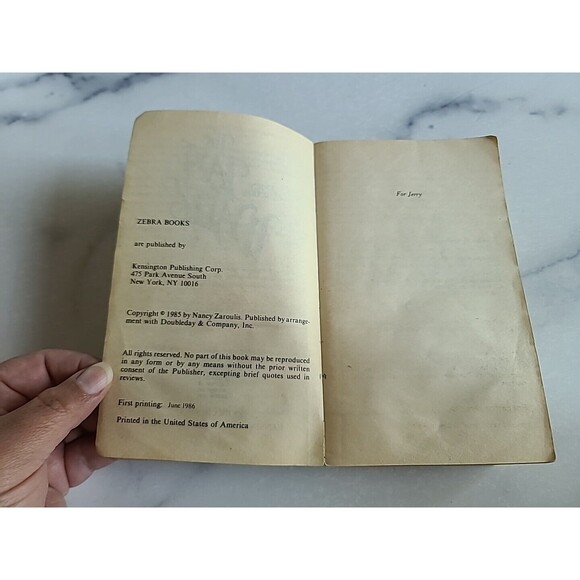 ZEBRA BOOKS
are published by
Kensington Publishing Corp.
475 Park Avenue South
New York, NY 10016
Copyright © 1985 by Nancy Zaroulis. Published by arrange-
ment with Doubleday & Company, Inc.
All rights reserved. No part of this book may be reproduced
in any form or by any means without the prior written
consent of the Publisher, excepting brief quotes used in
reviews.
First printing: June 1986
Printed in the United States of America
For Jerry